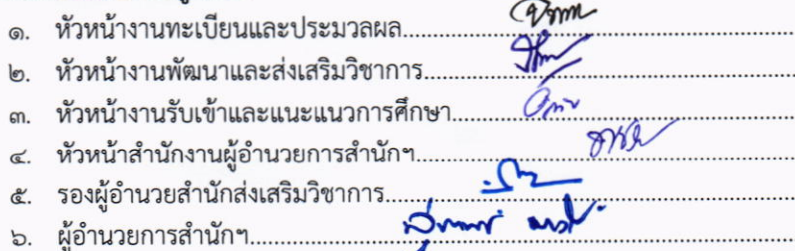 ๑. หัวหน้างานทะเบียนและประมวลผล
๒. หัวหน้างานพัฒนาและส่งเสริมวิชาการ
๓. หัวหน้างานรับเข้าและแนะแนวการศึกษา
๔. หัวหน้าสำนักงานผู้อำนวยการสำนักฯ
๕. รองผู้อำนวยสำนักส่งเสริมวิชาการ
๖. ผู้อำนวยการสำนักฯ